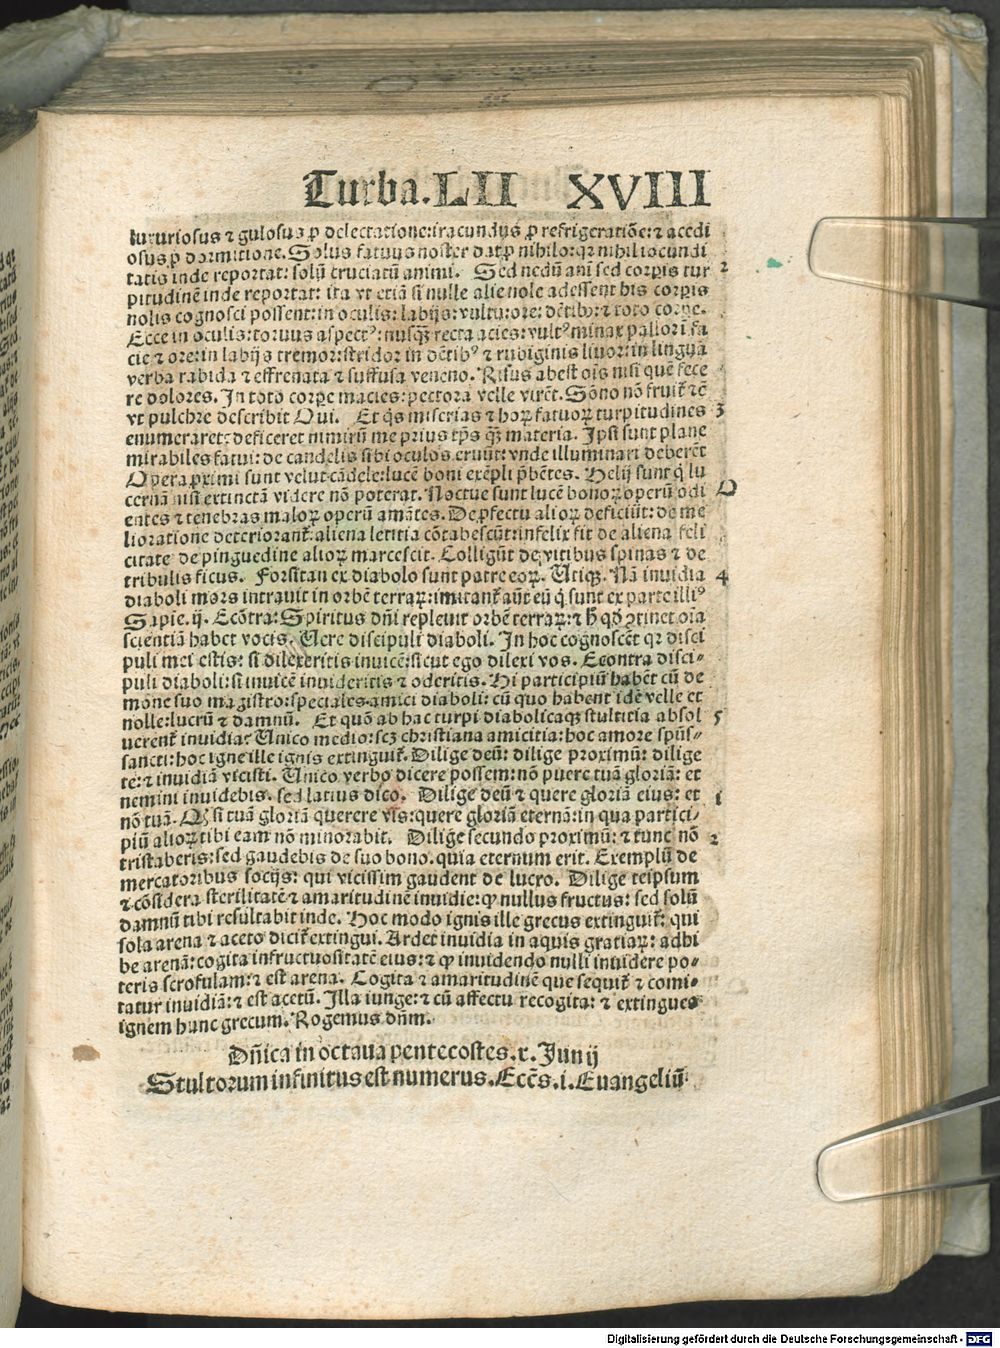 Turba. LII XVIII
luxuriosus ⁊ gulosus ꝓ delectatione: iracundus ꝓ refrigeratiõe: ⁊ accdi
osus ꝓ dormitione. Solus fatuus noster dat ꝓ nihilo: qr nihil iocundi
tatis inde reportat: solũ cruciatũ animi. Sed nedũ ani sed corpis tur 2
pitudinẽ inde reportat: ita vt etiã si nulle alie nole adessent his corpis
nolis cognosci possent: in oculis: labijs: vultu: ore: dẽtibꝰ: ⁊ toto corpe.
Ecce in oculis: toruus aspectꝰ: nusq̃ recta acies: vultꝰ minax pallor ĩ fa
cie ⁊ ore: in labijs tremor: stridor in dẽtibꝰ ⁊ rubiginis liuor: in lingua
verba rabida ⁊ effrenata ⁊ suffusa veneno. Risus abest ois nisi quẽ fece
re dolores. In toto corpe macies: pectora velle virẽt. Sõno nõ fruit᷑ ⁊c̃
vt pulchre describit Oui. Et q̃s miserias ⁊ hoꝝ fatuoꝝ turpitudines 3
enumeraret: deficeret nimirũ me prius tp̃s q̃ materia. Ipsi sunt plane
mirabiles fatui: de candelis sibi oculos eruũt: vnde illuminari deberẽt
Opera ꝓximi sunt velut cãdele: lucẽ boni exẽpli p̃bẽtes. Helij sunt q̃ lu
cernã nisi extinctã videre nõ poterat. Noctue sunt lucẽ bonoꝝ operũ odi O
entes ⁊ tenebras maloꝝ operũ amãtes. De ꝓfectu alioꝝ deficiũt: de me
lioratione deteriorant᷑: aliena letitia cõtabescũt: infelix fit de aliena feli
citate de pinguedine alioꝝ marcescit. Colligũt de vitibus spinas ⁊ de
tribulis ficus. Forsitan ex diabolo sunt patre eoꝝ. Utiqꝫ. Nã inuidia 4
diaboli mors intrauit in orbẽ terraꝝ: imitant᷑ aũt eũ q̇ sunt ex parte illiꝰ
Sapie. ij. Ecõtra: Spiritus dñi repleuit orbẽ terraꝝ: ⁊ h̃ qd̃ ꝯtinet oĩa
scientiã habet vocis. Uere discipuli diaboli. In hoc cognoscẽt qr disci
puli mei estis: si dilexeritis inuicẽ: sicut ego dilexi vos. Econtra disci⸗
puli diaboli: si inuicẽ inuideritis ⁊ oderitis. Hi participiũ habẽt cũ de
mone suo magistro: speciales amici diaboli: cũ quo habent idẽ velle et
nolle: lucrũ ⁊ damnũ. Et quõ ab hac turpi diabolicaqꝫ stultitia absol 5
uerent᷑ inuidia? Unico medio: scꝫ christiana amicitia: hoc amore spũs⸗
sancti: hoc igne ille ignis extinguit᷑. Dilige deũ: dilige proximũ: dilige
te: ⁊ inuidiã vicisti. Unico verbo dicere possem: nõ quere tuã gloriã: et
nemini inuidebis. sed latius dico. Dilige deũ ⁊ quere gloriã eius: et 1
nõ tuã. Q̃ si tuã gloriã querere vis: quere gloriã eternã: in qua partici⸗
piũ alioꝝ tibi eam nõ minorabit. Dilige secundo proximũ: ⁊ tunc nõ 2
tristaberis: sed gaudebis de suo bono. quia eternum erit. Exemplũ de
mercatoribus socijs: qui vicissim gaudent de lucro. Dilige teipsum
⁊ cõsidera sterilitatẽ ⁊ amaritudinẽ inuidie: ꝙ nullus fructus: sed solũ
damnũ tibi resultabit inde. Hoc modo ignis ille grecus extinguit᷑: qui
sola arena ⁊ aceto dicit᷑ extingui. Ardet inuidia in aquis gratiaꝝ: adhi
be arenã: cogita infructuositatẽ eius: ⁊ ꝙ inuidendo nulli inuidere po⸗
teris scrofulam: ⁊ est arena. Cogita ⁊ amaritudinẽ que sequit᷑ ⁊ comi⸗
tatur inuidiã: ⁊ est acetũ. Illa iunge: ⁊ cũ affectu recogita: ⁊ extingues
ignem hunc grecum. Rogemus dñm.
Dñica in octaua pentecostes. x. Junij
Stultorum infinitus est numerus. Ecc̃s. i. Euangeliũ
Digitalisierung gefördert durch die Deutsche Forschungsgemeinschaft - DFG